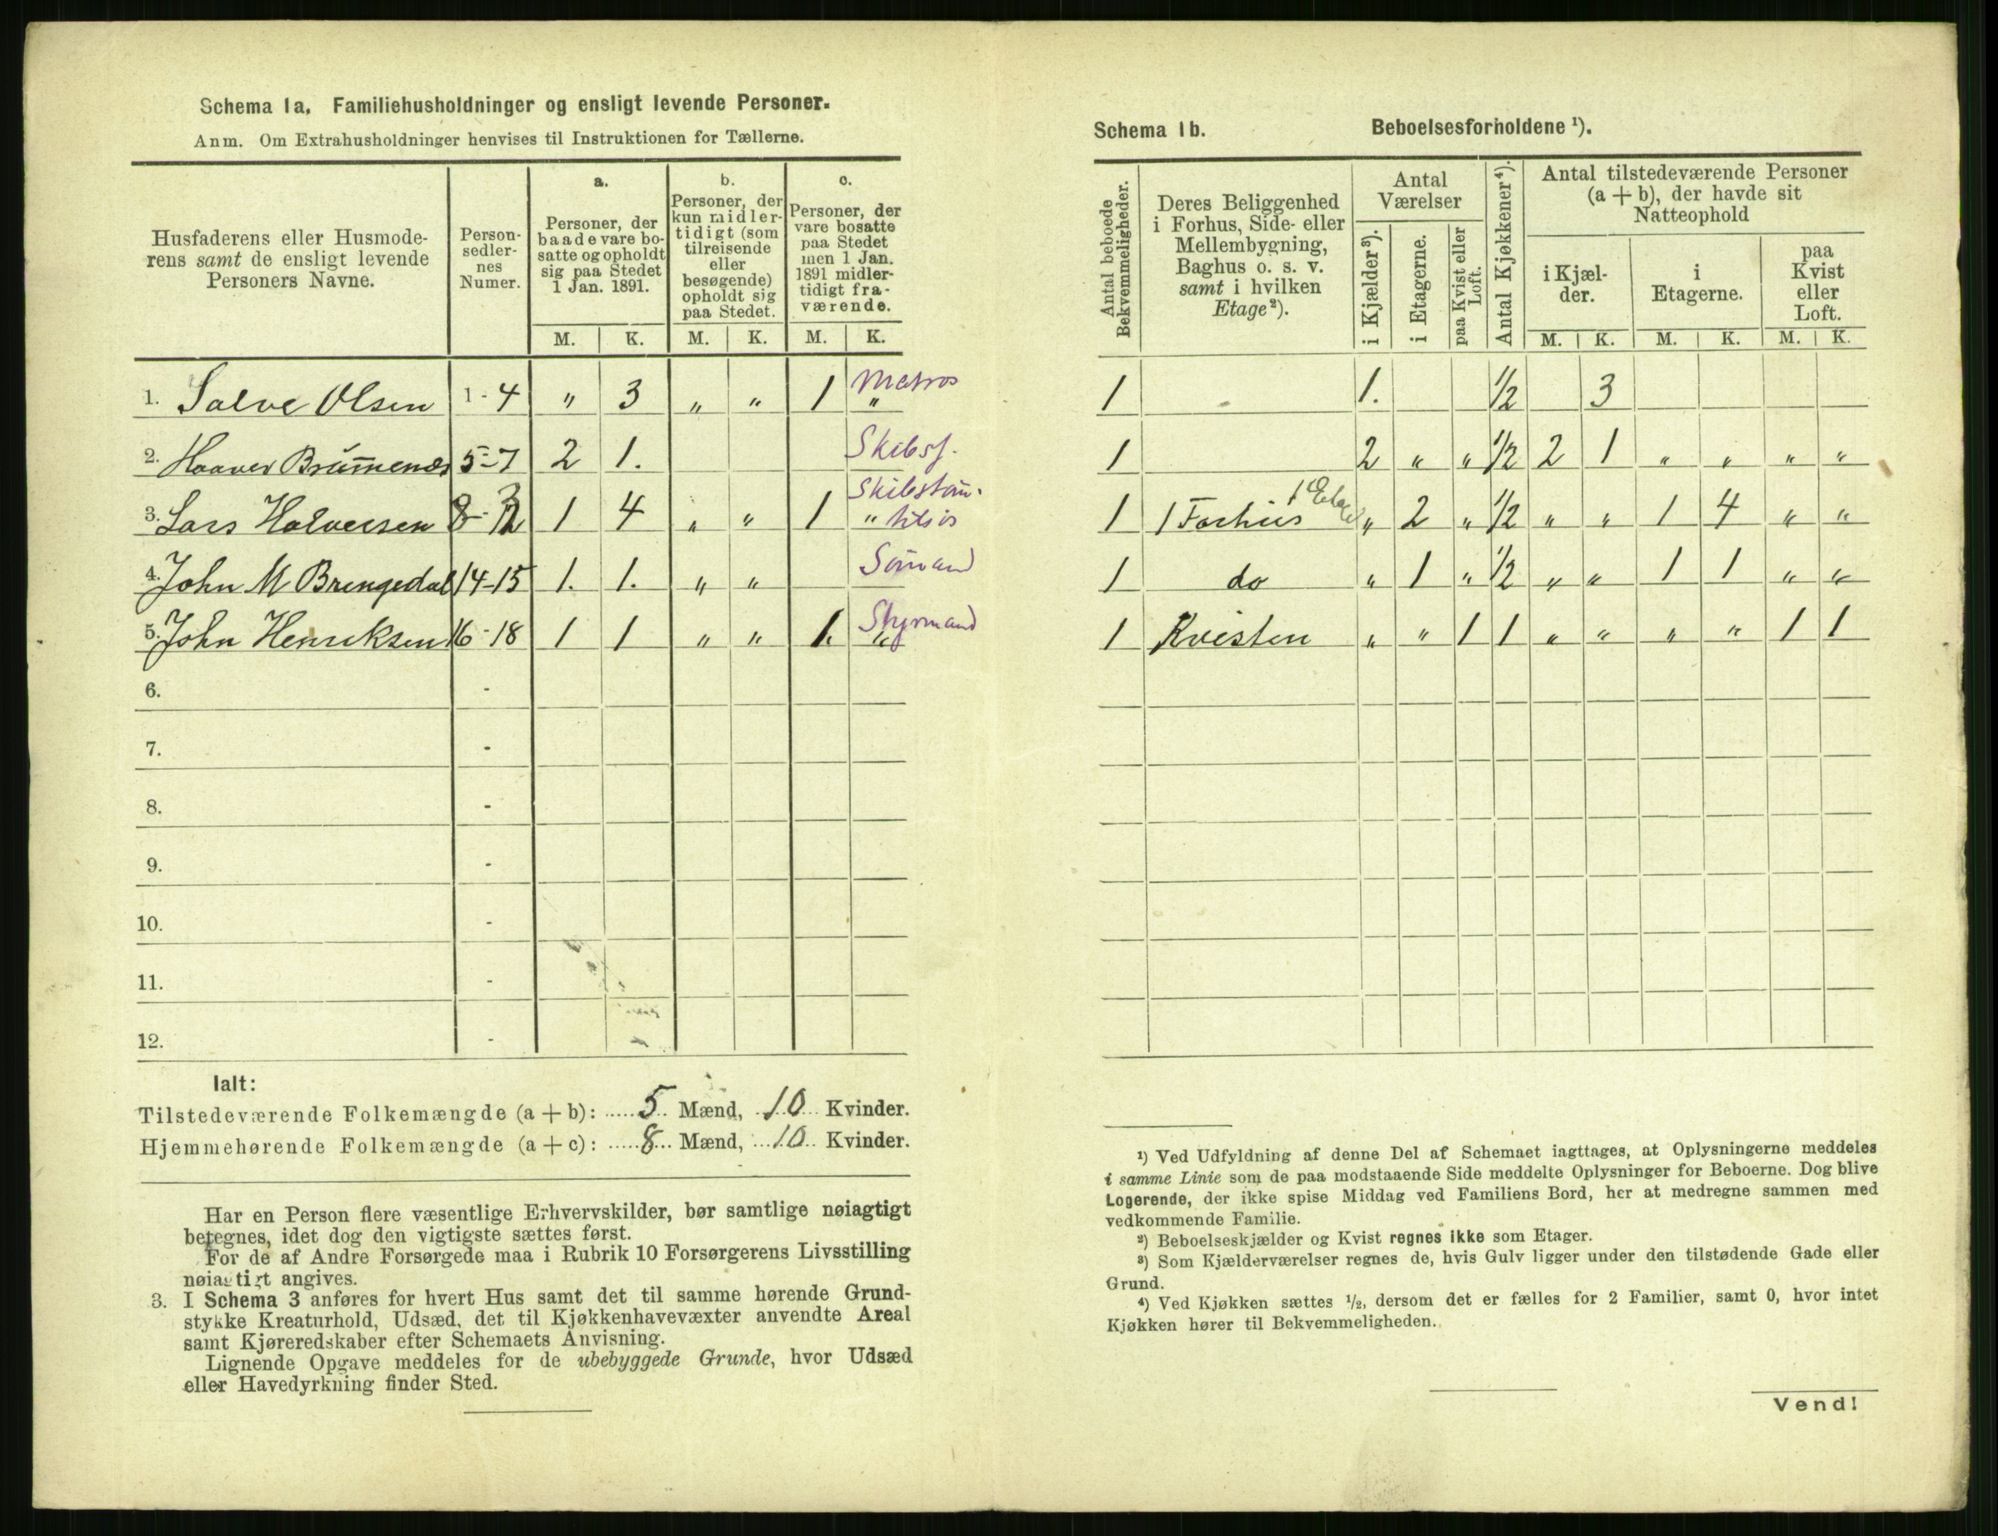 Schema 1a. Familiehusholdninger og ensligt levende Personer.
Anm. Om Extrahusholdninger henvises til Instruktionen for Tællerne.
Husfaderens eller Husmode-
rens samt de ensligt levende
Personers Navne.
Person-
sedler-
nes
Numer.
a.
Personer, der
baade vare bo-
satte og opholdt
sig paa Stedet
1 Jan. 1891.
b.
Personer, der
kun midler-
tidigt (som
tilreisende
eller
besøgende)
opholdt sig
paa Stedet.
c.
Personer, der
vare bosatte
paa Stedet
men 1 Jan.
1891 midler-
tidigt fra-
værende.
M. K. M. K. M. K.
1. Salve Olsen 1 - 4 " 3 " " 1 Matros "
2. Haaver 5-7 2 1. Skibsf.
3. Lars Halvorsen 8 - 1 4 " " 1 Skibstøm- "
4. John M Brengedal 14-15 1. 1. " " Sømand
5. John Henriksen 16 - 18 1 1 " " 1. Styrmand "
6. -
7. -
8. -
9. -
10. -
11. -
12. -
Ialt:
Tilstedeværende Folkemængde (a + b): 5 Mænd, 10 Kvinder.
Hjemmehørende Folkemængde (a + c): 8 Mænd, 10 Kvinder.
Har en Person flere væsentlige Erhvervskilder, bør samtlige nøiagtigt
betegnes, idet dog den vigtigste sættes først.
For de af Andre Forsørgede maa i Rubrik 10 Forsørgerens Livsstilling
nøiagtigt angives.
3. I Schema 3 anføres for hvert Hus samt det til samme hørende Grund-
stykke Kreaturhold, Udsæd, det til Kjøkkenhavevæxter anvendte Areal
samt Kjøreredskaber efter Schemaets Anvisning.
Lignende Opgave meddeles for de ubebyggede Grunde, hvor Udsæd
eller Havedyrkning finder Sted.
Schema 1b. Beboelsesforholdene ¹).
Antal beboede
Bekvemmeligheder.
Deres Beliggenhed
i Forhus, Side- eller
Mellembygning,
Baghus o. s. v.
samt i hvilken
Etage ²).
Antal
Værelser
i Kjælder ³).
i Etagerne.
paa Kvist eller
Loft.
Antal Kjøkkener ⁴).
Antal tilstedeværende Personer
(a + b), der havde sit
Natteophold
i Kjæl-
der.
i
Etagerne.
paa
Kvist
eller
Loft.
M. K. M. K. M. K.
1 1. 1/2 3
1 2 " " 1/2 2 1 " " " "
1 1 Forhus 1 " 2 " 1/2 " " 1 4 " "
1 do " 1 " 1/2 " " 1 1 " "
1 Kvisten " " 1 1 " " " " 1 1
¹) Ved Udfyldning af denne Del af Schemaet iagttages, at Oplysningerne meddeles
i samme Linie som de paa modstaaende Side meddelte Oplysninger for Beboerne. Dog blive
Logerende, der ikke spise Middag ved Familiens Bord, her at medregne sammen med
vedkommende Familie.
²) Beboelseskjælder og Kvist regnes ikke som Etager.
³) Som Kjælderværelser regnes de, hvis Gulv ligger under den tilstødende Gade eller
Grund.
⁴) Ved Kjøkken sættes ½, dersom det er fælles for 2 Familier, samt 0, hvor intet
Kjøkken hører til Bekvemmeligheden.
Vend!